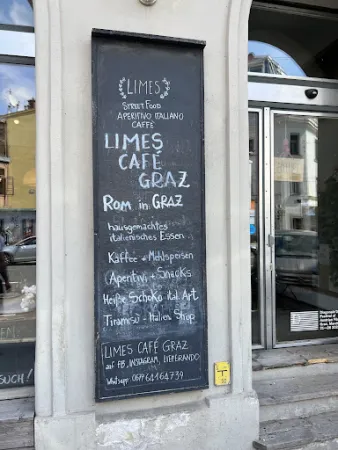 LIMES
STREET FOOD
APERITIVO ITALIANO
CAFFÈ
LIMES
CAFÉ
GRAZ
ROM in GRAZ
hausgemachtes
italienisches Essen
Kaffee + Mehlspeisen
(Aperitivi) + Snacks
Heiße Schoko ital. Art
Tiramisu - Italien Shop
LIMES CAFÉ GRAZ
auf FB, INSTAGRAM, LIEFERANDO